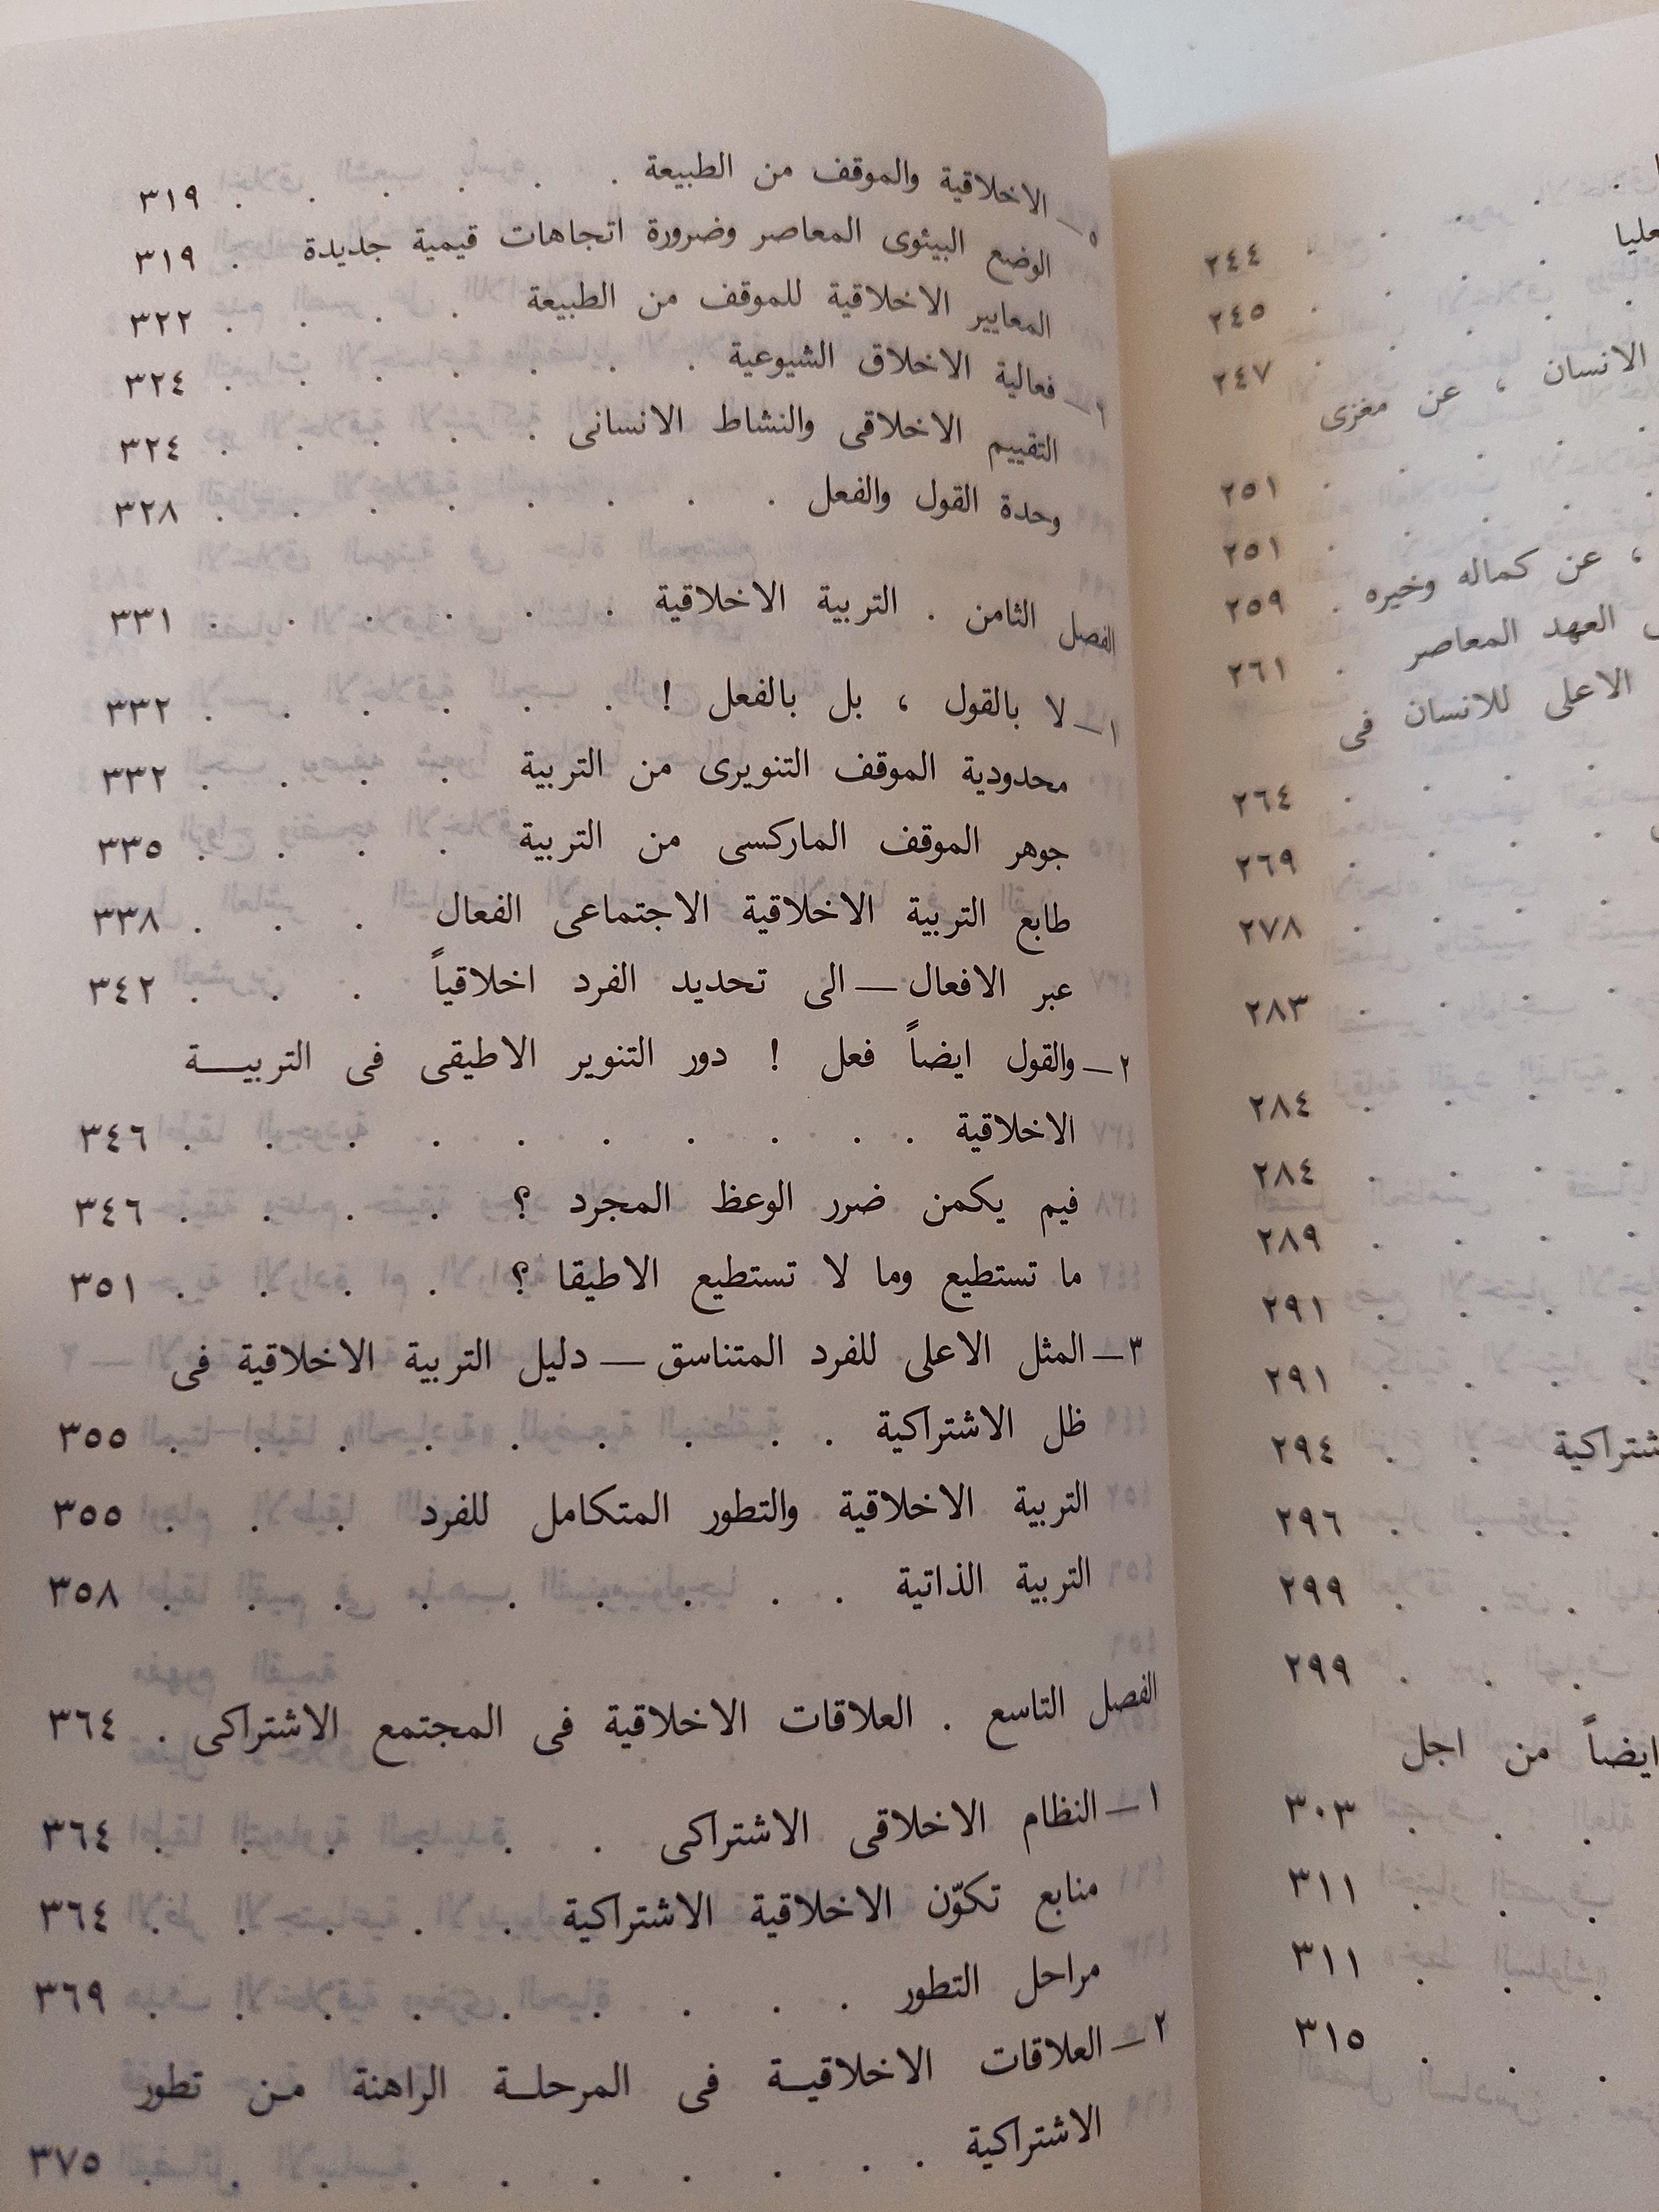 عليا
. ٢٤٤
. ٢٤٥
. ٢٤٧
الانسان ، عن مغزى
. ٢٥١
. ٢٥١
، عن كماله وخيره . ٢٥٩
العهد المعاصر . ٢٦١
الاعلى للانسان فى
. ٢٦٤
. ٢٦٩
. ٢٧٨
. ٢٨٣
. ٢٨٤
. ٢٨٤
. ٢٨٩
. ٢٩١
. ٢٩١
. ٢٩٤
. ٢٩٦
. ٢٩٩
. ٢٩٩
ايضاً من اجل
. ٣٠٣
. ٣١١
. ٣١١
. ٣١٥
٥ — الاخلاقية والموقف من الطبيعة . . . . . . ٣١٩
الوضع البيئوى المعاصر وضرورة اتجاهات قيمية جديدة . ٣١٩
المعايير الاخلاقية للموقف من الطبيعة . . . . ٣٢٢
٦ — فعالية الاخلاق الشيوعية . . . . . . . ٣٢٤
التقييم الاخلاقى والنشاط الانسانى . . . . . ٣٢٤
وحدة القول والفعل . . . . . . . . ٣٢٨
الفصل الثامن . التربية الاخلاقية . . . . . . ٣٣١
١ — لا بالقول ، بل بالفعل ! . . . . . . ٣٣٢
محدودية الموقف التنويرى من التربية . . . . ٣٣٢
جوهر الموقف الماركسى من التربية . . . . ٣٣٥
طابع التربية الاخلاقية الاجتماعى الفعال . . . ٣٣٨
عبر الافعال — الى تحديد الفرد اخلاقياً . . . ٣٤٢
٢ — والقول ايضاً فعل ! دور التنوير الاطيقى فى التربيــة
الاخلاقية . . . . . . . . . . ٣٤٦
فيم يكمن ضرر الوعظ المجرد ؟ . . . . ٣٤٦
ما تستطيع وما لا تستطيع الاطيقا ؟ . . . . ٣٥١
٣ — المثل الاعلى للفرد المتناسق — دليل التربية الاخلاقية فى
ظل الاشتراكية . . . . . . . . . ٣٥٥
التربية الاخلاقية والتطور المتكامل للفرد . . . ٣٥٥
التربية الذاتية . . . . . . . . . ٣٥٨
الفصل التاسع . العلاقات الاخلاقية فى المجتمع الاشتراكى . ٣٦٤
١ — النظام الاخلاقى الاشتراكى . . . . . . ٣٦٤
منابع تكوّن الاخلاقية الاشتراكية . . . . . ٣٦٤
مراحل التطور . . . . . . . . . ٣٦٩
٢ — العلاقات الاخلاقيــة فى المرحلــة الراهنة مـن تطور
الاشتراكية . . . . . . . . . ٣٧٥